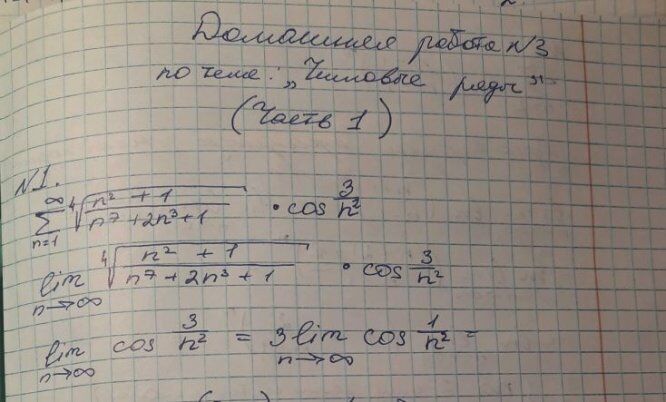 Домашняя работа №3
по теме: „Числовые ряды"
(Часть 1)
№1.
∑_{n=1}^{∞} ⁴√((n² + 1)/(n⁷ + 2n³ + 1)) · cos 3/n²
lim_{n→∞} ⁴√((n² + 1)/(n⁷ + 2n³ + 1)) · cos 3/n²
lim_{n→∞} cos 3/n² = 3 lim_{n→∞} cos 1/n² =